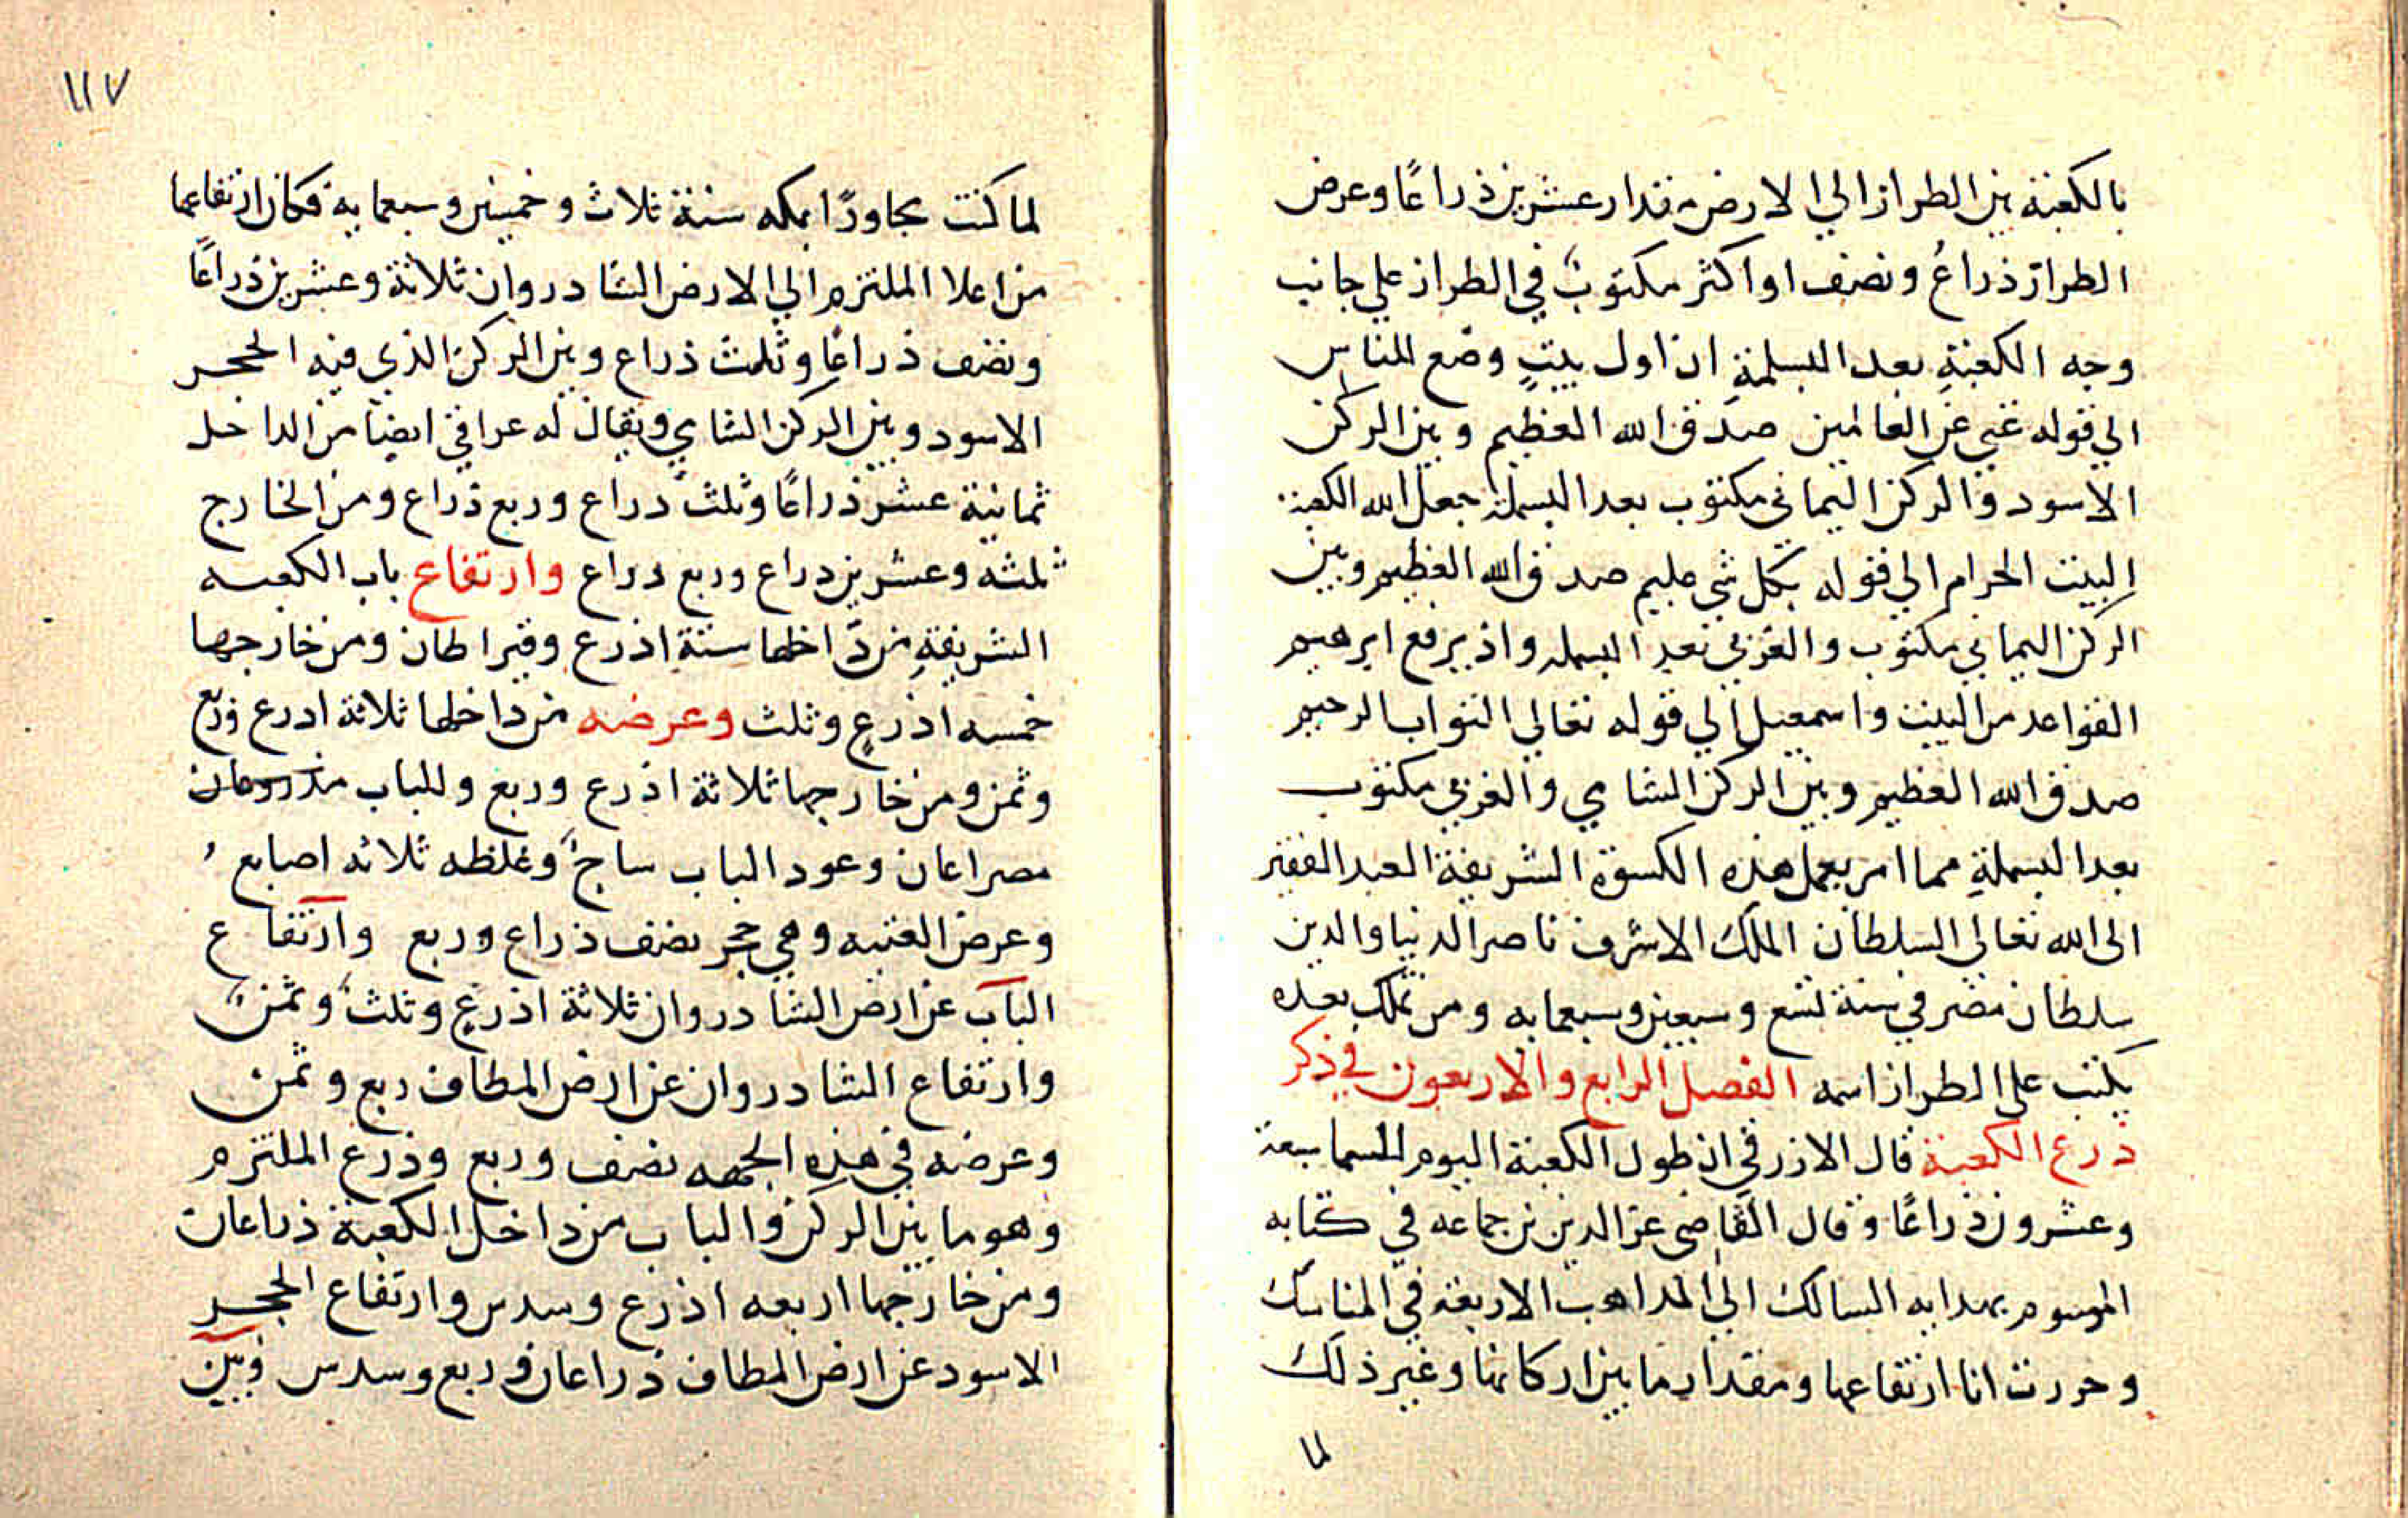 بالكعبة بين الطراز الي الارض مقدار عشرين ذراعًا وعرض
الطراز ذراعُ ونصف او اكثر مكتوبٌ في الطراز علي جانب
وجه الكعبةِ بعد البسلمةِ ان اول بيتٍ وضع للناس
الي قوله غني عن العالمين صدق الله العظيم وبين الركن
الاسود والركن اليماني مكتوب بعد البسملة جعل الله الكعبة
البيت الحرام الي قوله بكل شي عليم صدق الله العظيم وبين
الركن اليماني مكتوب والغربي بعد البسمله واذ يرفع ابرهيم
القواعد من البيت واسمعيل الي قوله تعالي التواب الرحيم
صدق الله العظيم وبين الركن الشامي والغربي مكتوب
بعد البسملةِ مما امر بعمل هذه الكسوة الشريفة العبد الفقير
الى الله تعالى السلطان الملك الاشرف ناصر الدنيا والدين
سلطان مصر في سنة تسع وسبعين وسبعمايه ومن تملك بعده
يكتب على الطراز اسمه الفصل الرابع والاربعون في ذكر
ذرع الكعبة قال الازرقي ان طول الكعبة اليوم للسما سبعة
وعشرون ذراعًا وقال القاضي عز الدين بن جماعه في كتابه
الموسوم بهدايه السالك الي المداهب الاربعة في المناسك
وحررت انا ارتفاعها ومقدار ما بين اركانها وغير ذلك
لما
١١٧
لما كنت مجاورًا بمكه سنة ثلاث وخمسين وسبعمايه فكان ارتفاعها
من اعلا الملتزم الي الارض الشادروان ثلاثة وعشرين ذراعًا
ونصف ذراعًا وثلث ذراع وبين الركن الذي فيه الحجر
الاسود وبين الركن الشامي ويقال له عراقي ايضا من الداخل
ثمانية عشر ذراعًا وثلث دراع وربع ذراع ومن الخارج
ثلثه وعشرين دراع وربع دراع وارتفاع باب الكعبه
الشريفةِ من دَاخلها ستة اذرع وقيراطان ومن خارجها
خمسه اذرعٍ وثلث وعرضه من داخلها ثلاثة ادرع وربع
وثمن ومن خارجها ثلاثة اذرع وربع وللباب
مصراعان وعود الباب ساجٌ وغلظه ثلاثه اصابع
وعرض العتبه وهي حجر نصف ذراع وربع وارتفاع
الباب عن ارض الشادروان ثلاثة اذرعٍ وثلثٌ وثمنٌ
وارتفاع الشادروان عن ارض المطاف ربع وثمن
وعرضه في هذه الجهه نصف وربع وذرع الملتزم
وهو ما بين الركن والباب من داخل الكعبة ذراعان
ومن خارجها اربعه اذرع وسدس وارتفاع الحجر
الاسود عن ارض المطاف ذراعان وربع وسدس وبين